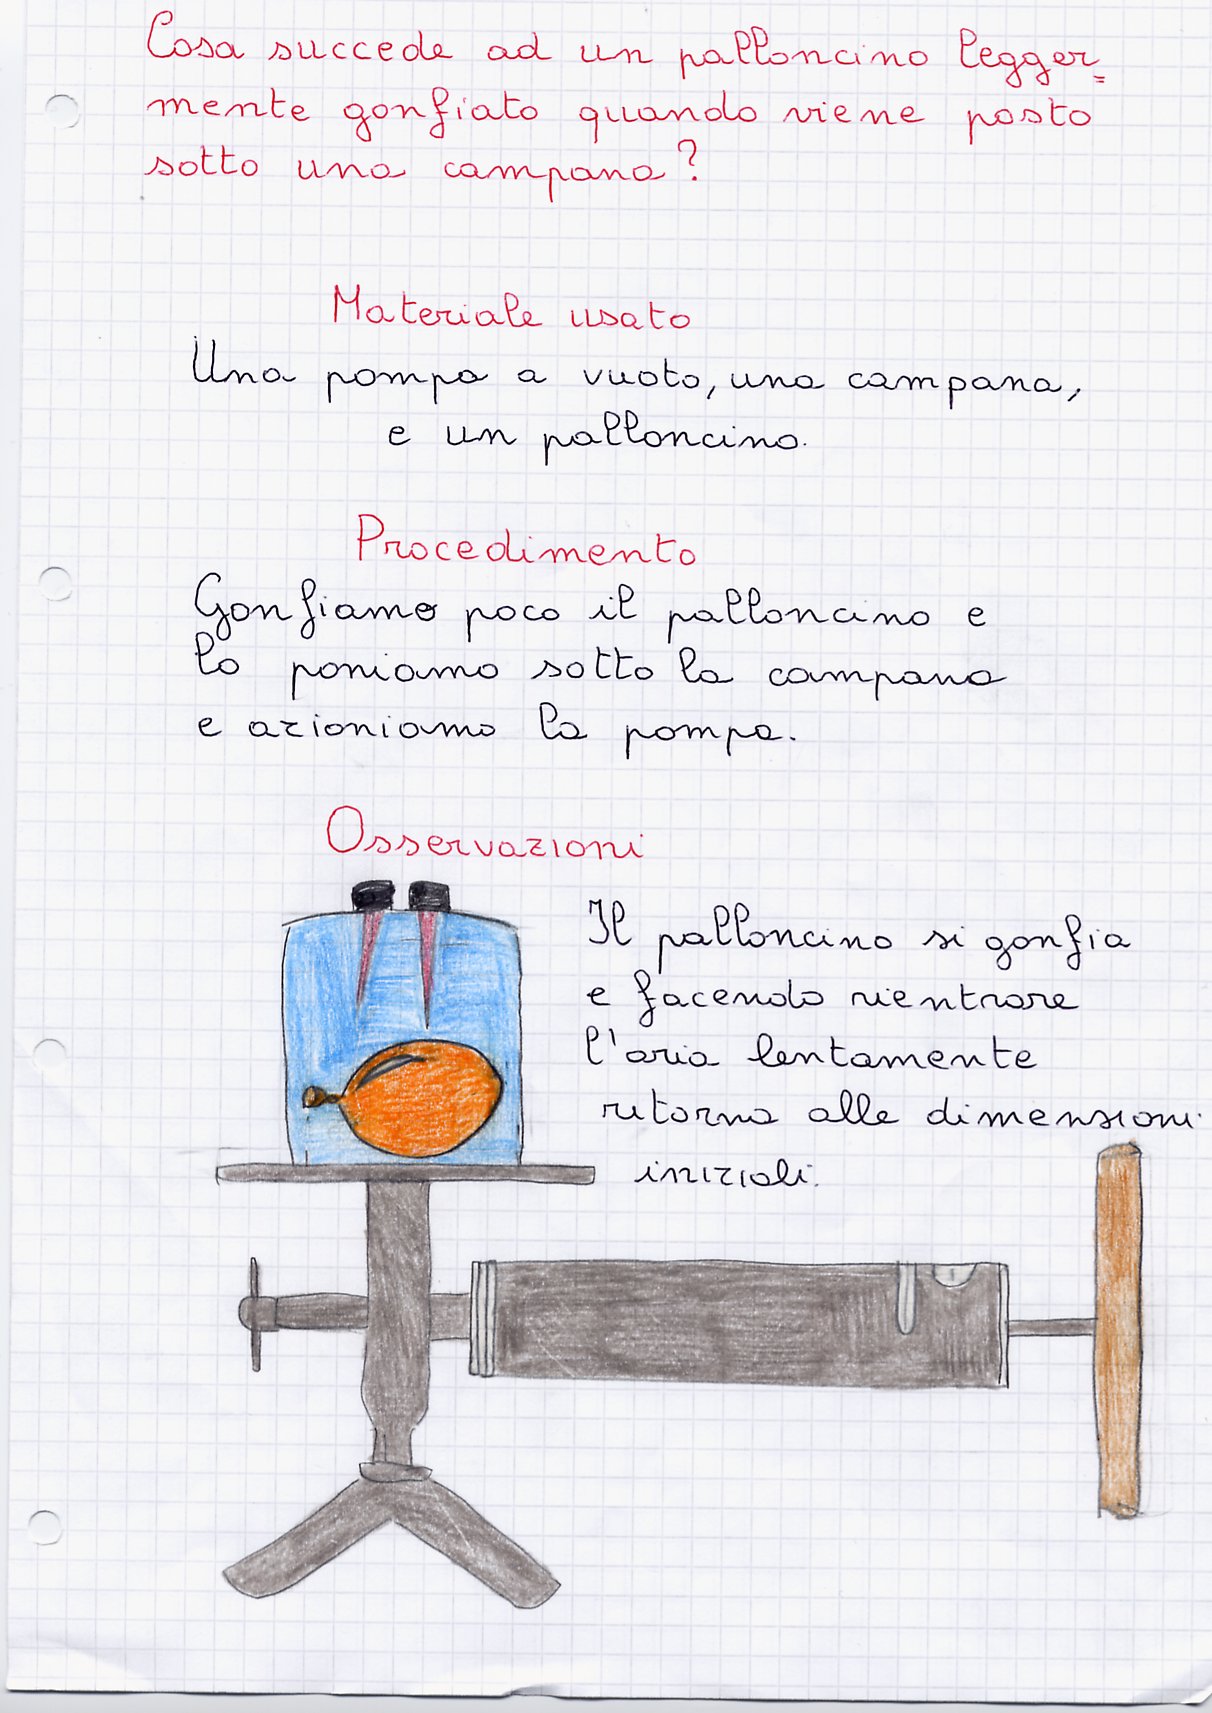 Cosa succede ad un palloncino legger=
mente gonfiato quando viene posto
sotto una campana?
Materiale usato
Una pompa a vuoto, una campana,
e un palloncino.
Procedimento
Gonfiamo poco il palloncino e
lo poniamo sotto la campana
e azioniamo la pompa.
Osservazioni
Il palloncino si gonfia
e facendo rientrare
l'aria lentamente
ritorna alle dimensioni
iniziali.